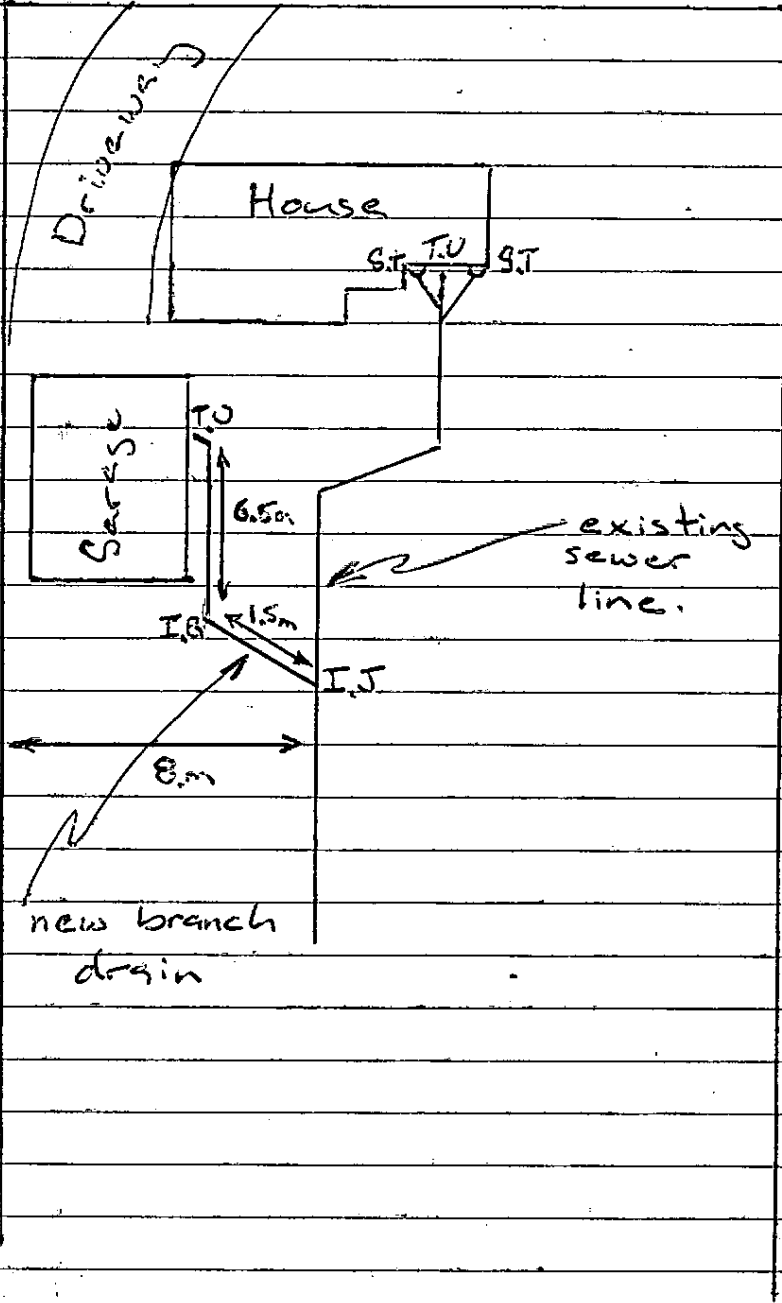 Driveway
House
S.T T.V S.T
Garage
T.V
6.5m
existing
sewer
line.
1.5m
I.J
8.m
new branch
drain